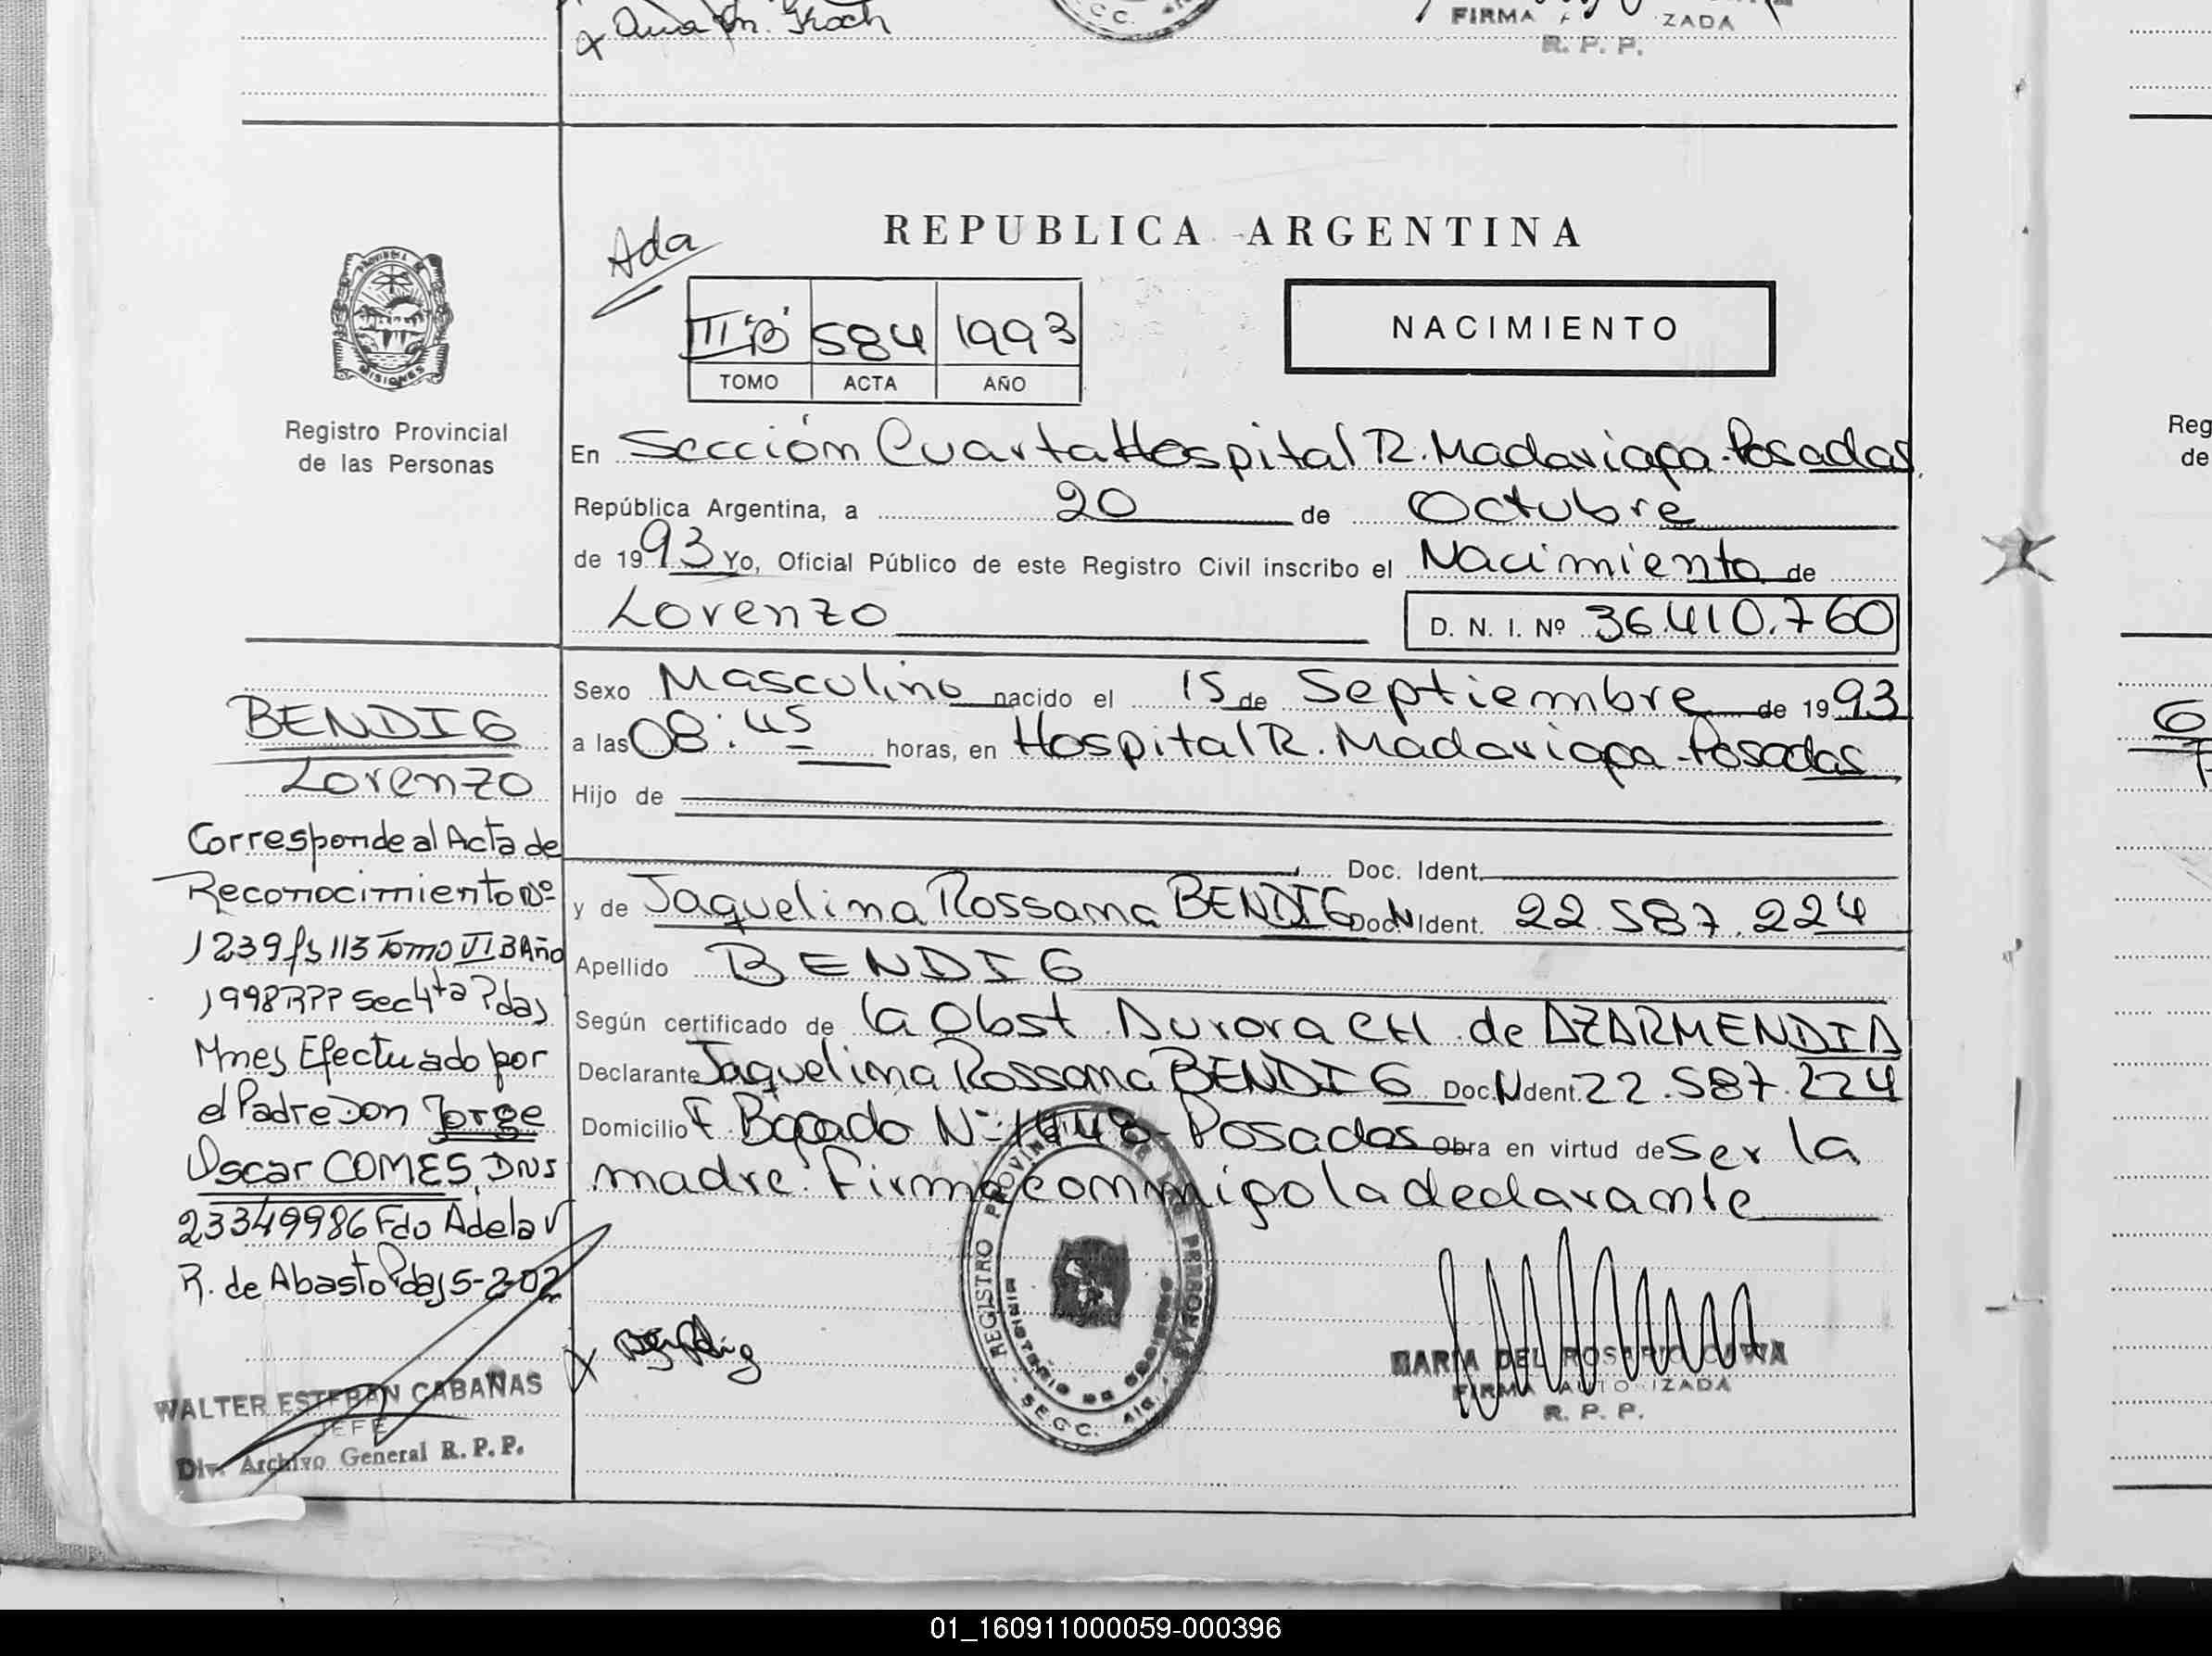 x Ana M. Koch
FIRMA ZADA
R. P. P.
REPUBLICA ARGENTINA
Ada
III "B" 584 1993
TOMO ACTA AÑO
NACIMIENTO
PROVINCIA MISIONES
Registro Provincial
de las Personas
En Sección Cuarta Hospital R. Madariaga-Posadas
República Argentina, a 20 de Octubre
de 1993 Yo, Oficial Público de este Registro Civil inscribo el Nacimiento de
Lorenzo D. N. I. Nº 36.410.760
Sexo Masculino nacido el 15 de Septiembre de 1993
a las 08:45 horas, en Hospital R. Madariaga-Posadas
Hijo de
Doc. Ident.
y de Jaquelina Rossana BENDIG Doc. N Ident. 22.587.224
Apellido BENDIG
Según certificado de la Obst. Aurora CH. de AZARMENDIA
Declarante Jaquelina Rossana BENDIG Doc. N Ident. 22.587.224
Domicilio F. Bogado Nº 1448-Posadas Obra en virtud de ser la
madre. Firma conmigo la declarante
BENDIG
Lorenzo
Corresponde al Acta de
Reconocimiento Nº
1239 fs 113 Tomo VI B Año
1998 RPP Sec 4ta Pdas
Mnes Efectuado por
el Padre Don Jorge
Oscar COMES, DNI
23349986 Fdo Adela V
R. de Abasto Pdas 5-2-02
WALTER ESTEBAN CABAÑAS
JEFE
Div. Archivo General R. P. P.
x Bendig
REGISTRO PROVINCIAL DE LAS PERSONAS
MINISTERIO DE GOBIERNO
SECC. 4ta.
MARIA DEL ROSARIO
FIRMA AUTORIZADA
R. P. P.
Reg
de
6
01_160911000059-000396